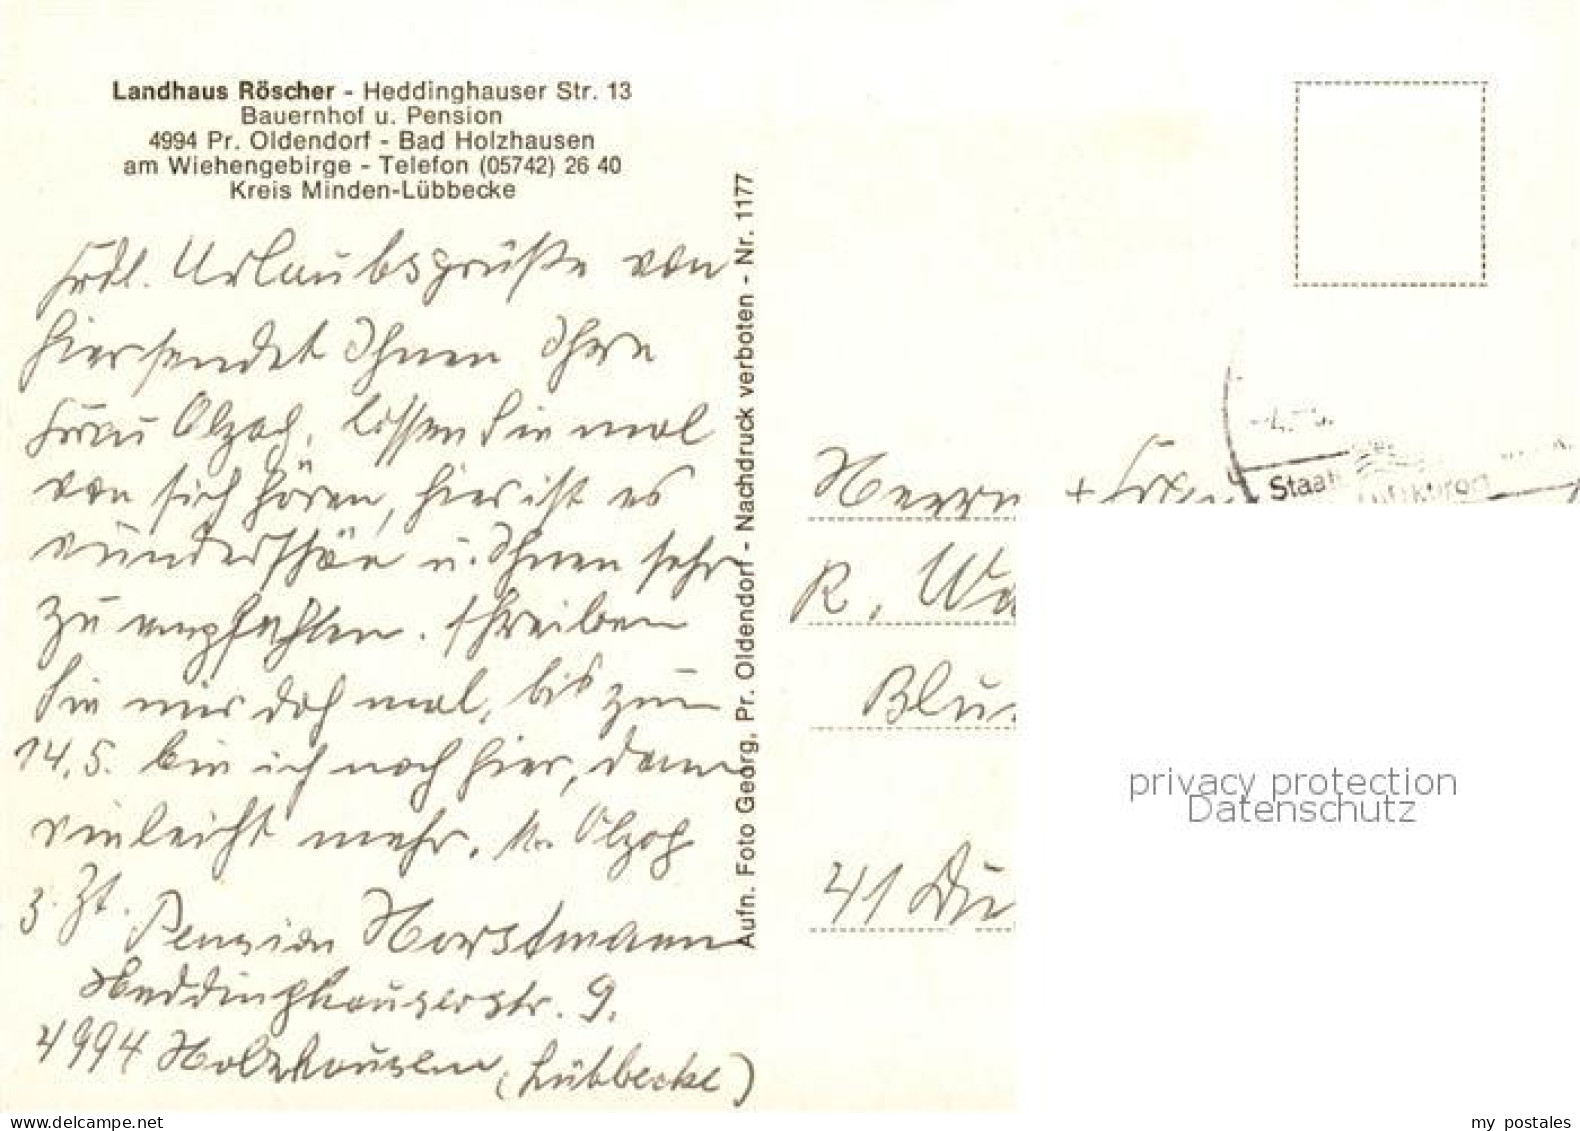 Landhaus Röscher - Heddinghauser Str. 13
Bauernhof u. Pension
4994 Pr. Oldendorf - Bad Holzhausen
am Wiehengebirge - Telefon (05742) 26 40
Kreis Minden-Lübbecke
Frdl. Urlaubsgrüße von
hier sendet Ihnen Ihre
Frau Olzog, lassen Sie mal
von sich hören, hier ist es
wunderschön u. Ihnen sehr
zu empfehlen. schreiben
Sie mir doch mal, bis zum
14.5. bin ich noch hier, dann
vielleicht mehr. Olzog
z. Zt. Pension Horstmann
Heddinghauserstr. 9.
4994 Holzhausen (Lübbecke)
Aufn. Foto Georg, Pr. Oldendorf - Nachdruck verboten - Nr. 1177
Herrn + Frau
R. Wa
Blu
41 Du
Staatl. Luftkurort
privacy protection
Datenschutz
www.delcampe.net
my postales